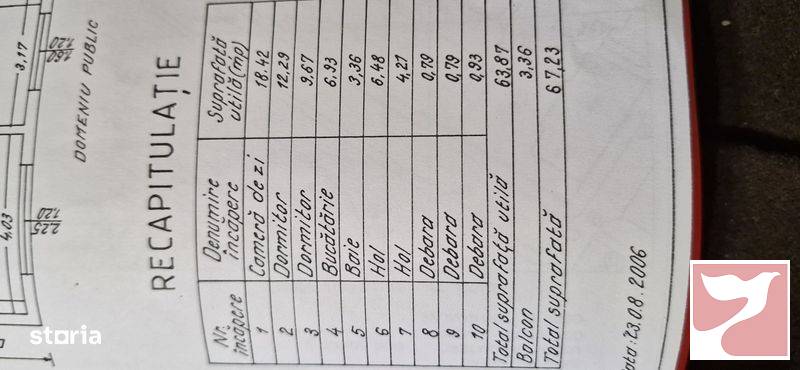 3,17
1.20
1.60
DOMENIU PUBLIC
4,03
1.20
2.25
RECAPITULAȚIE
Nr. încăpere Denumire încăpere Suprafață utilă (mp)
1 Cameră de zi 18.42
2 Dormitor 12.29
3 Dormitor 9,67
4 Bucătărie 6.93
5 Baie 3,36
6 Hol 6.48
7 Hol 4,27
8 Debara 0,79
9 Debara 0,79
10 Debara 0,93
Total suprafață utilă 63,87
Balcon 3,36
Total suprafată 67,23
08.2006
storia